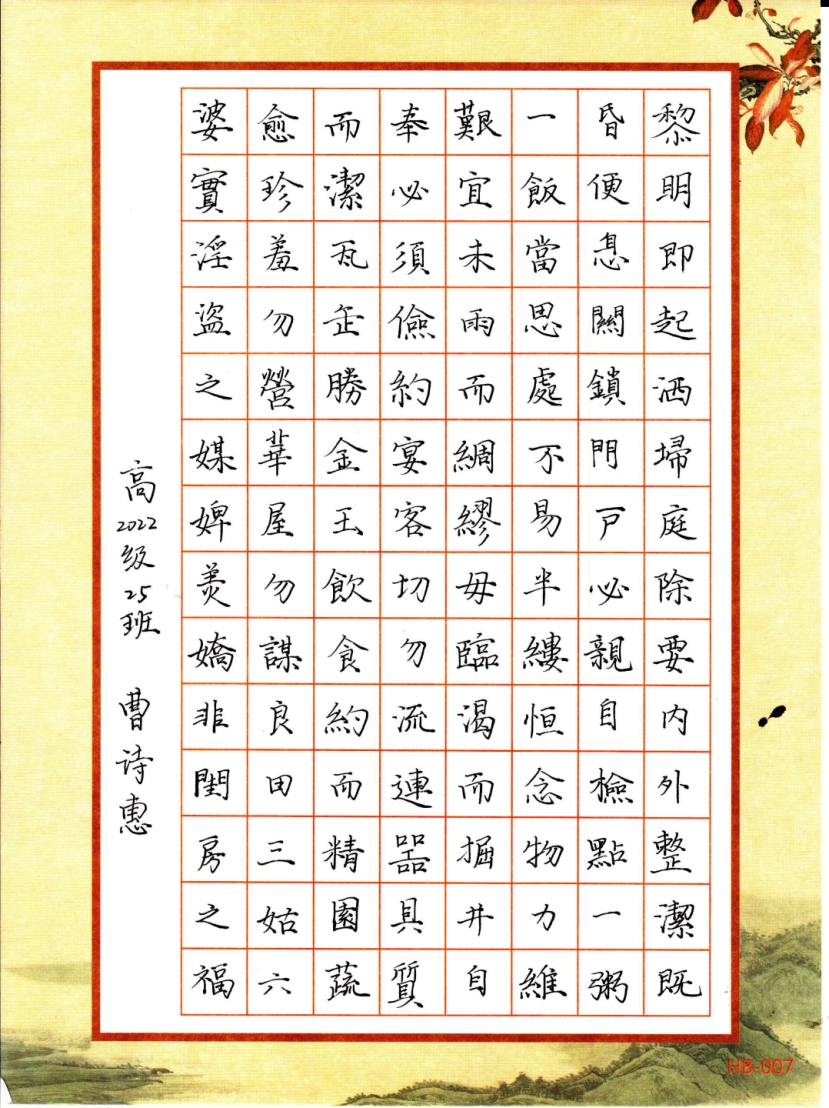 黎明即起洒埽庭除要内外整潔既
昏便息關鎖門戶必親自檢點一粥
一飯當思處不易半縷恒念物力維
艱宜未雨而綢繆毋臨渴而掘井自
奉必須儉約宴客切勿流連器具質
而潔瓦缶勝金玉飲食約而精園蔬
愈珍羞勿營華屋勿謀良田三姑六
婆實淫盜之媒婢美嬌非閨房之福
高2022级25班 曹诗惠
HB-007